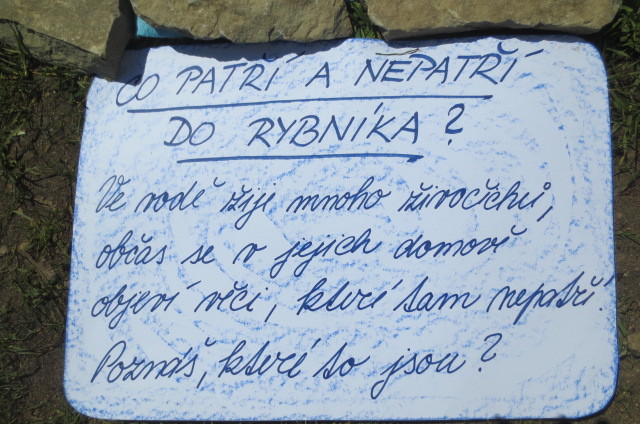 CO PATŘÍ A NEPATŘÍ
DO RYBNÍKA?
Ve vodě žije mnoho živočichů,
občas se v jejich domově
objeví věci, které tam nepatří.
Poznáš, které to jsou?